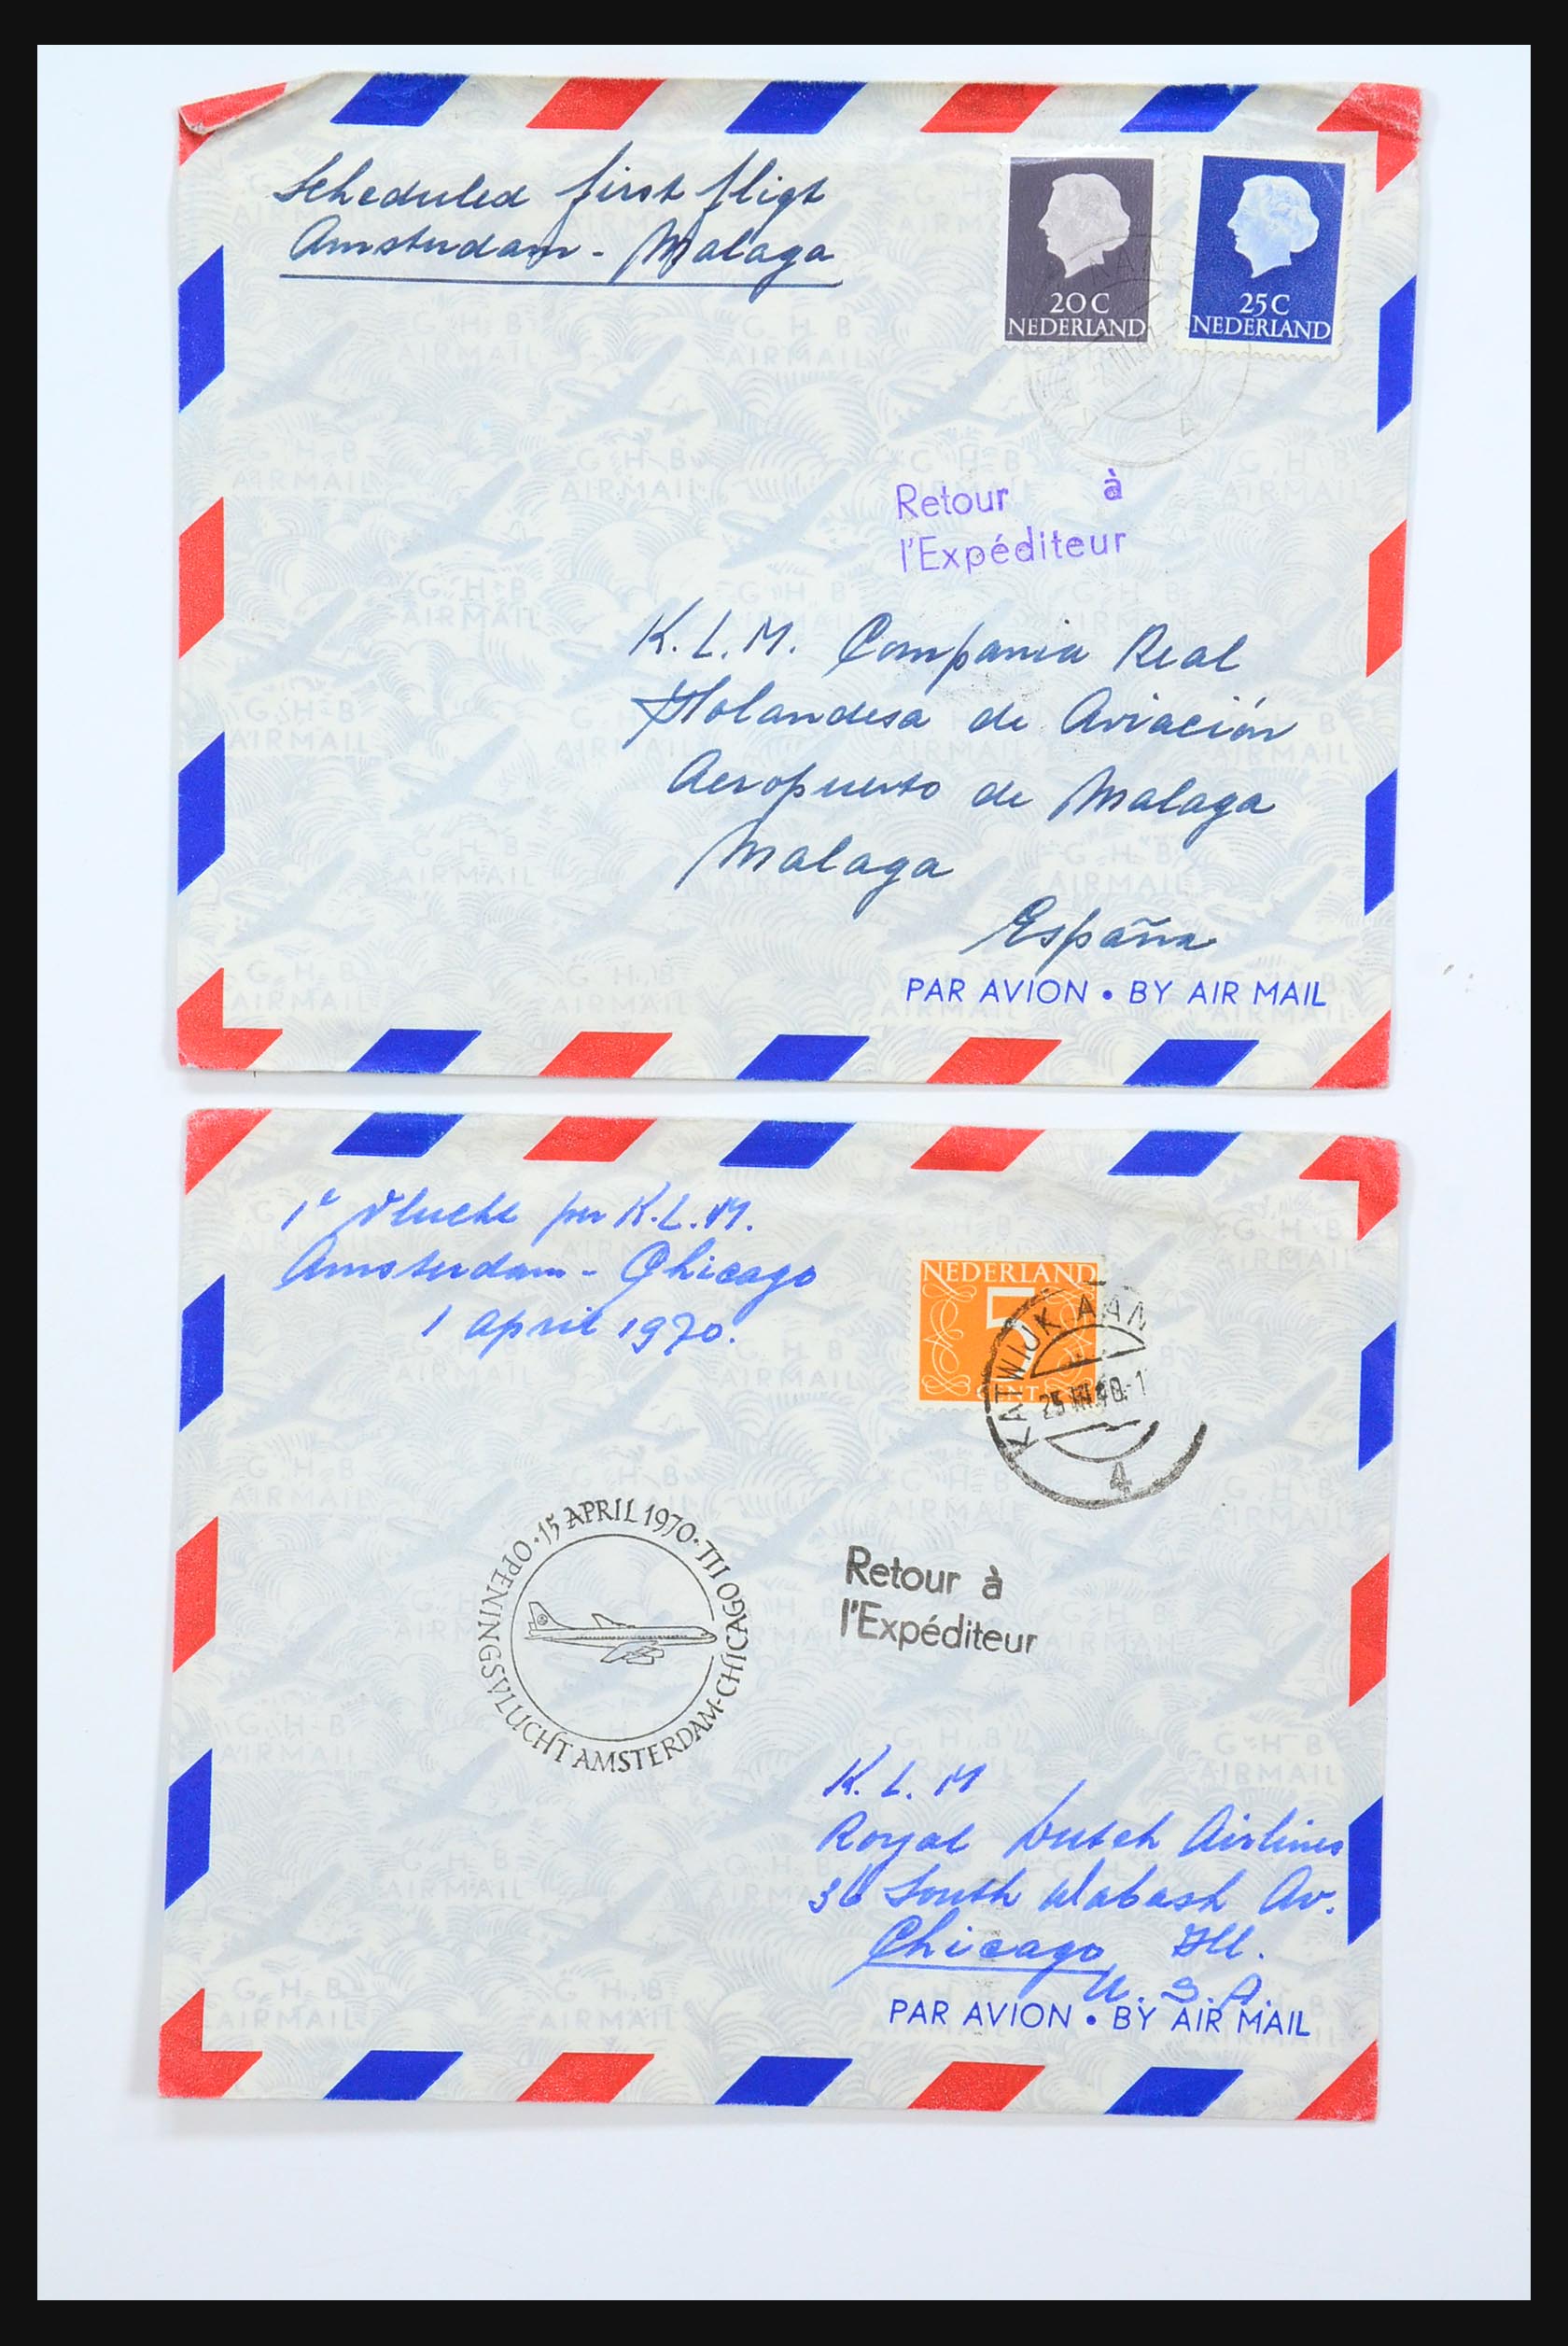 Scheduled first fligt
Amsterdam - Malaga
20 C
NEDERLAND
25 C
NEDERLAND
4
Retour à
l'Expéditeur
K.L.M. Compania Real
Holandesa de Aviación
Aeropuerto de Malaga
Malaga
España
PAR AVION • BY AIR MAIL
1e Vlucht per K.L.M.
Amsterdam - Chicago
1 april 1970.
NEDERLAND
CENT
KATWIJK AAN
4
OPENINGSVLUCHT AMSTERDAM-CHICAGO III · 15 APRIL 1970 ·
Retour à
l'Expéditeur
K. L. M
Royal Dutch Airlines
36 South Wabash Av.
Chicago Ill.
U. S. A.
PAR AVION • BY AIR MAIL
G H B
AIRMAIL